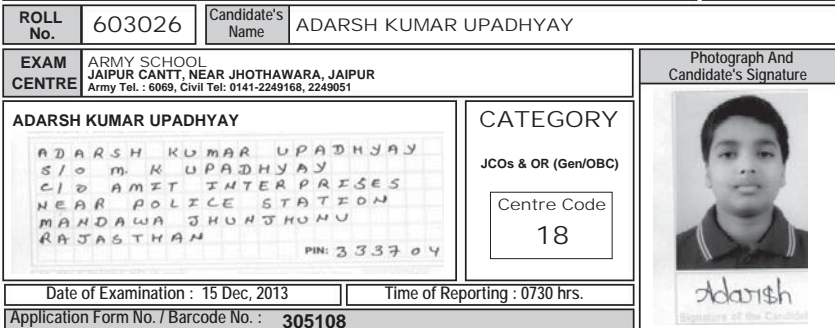 ROLL No. 603026 Candidate's Name ADARSH KUMAR UPADHYAY
EXAM CENTRE ARMY SCHOOL
JAIPUR CANTT, NEAR JHOTHAWARA, JAIPUR
Army Tel. : 6069, Civil Tel: 0141-2249168, 2249051
Photograph And
Candidate's Signature
ADARSH KUMAR UPADHYAY
ADARSH KUMAR UPADHYAY
S/O M. K UPADHYAY
C/O AMIT INTERPRISES
NEAR POLICE STATION
MANDAWA JHUNJHUNU
RAJASTHAN
PIN: 333704
CATEGORY
JCOs & OR (Gen/OBC)
Centre Code
18
Adarsh
Signature of the Candidat
Date of Examination : 15 Dec, 2013
Time of Reporting : 0730 hrs.
Application Form No. / Barcode No. : 305108